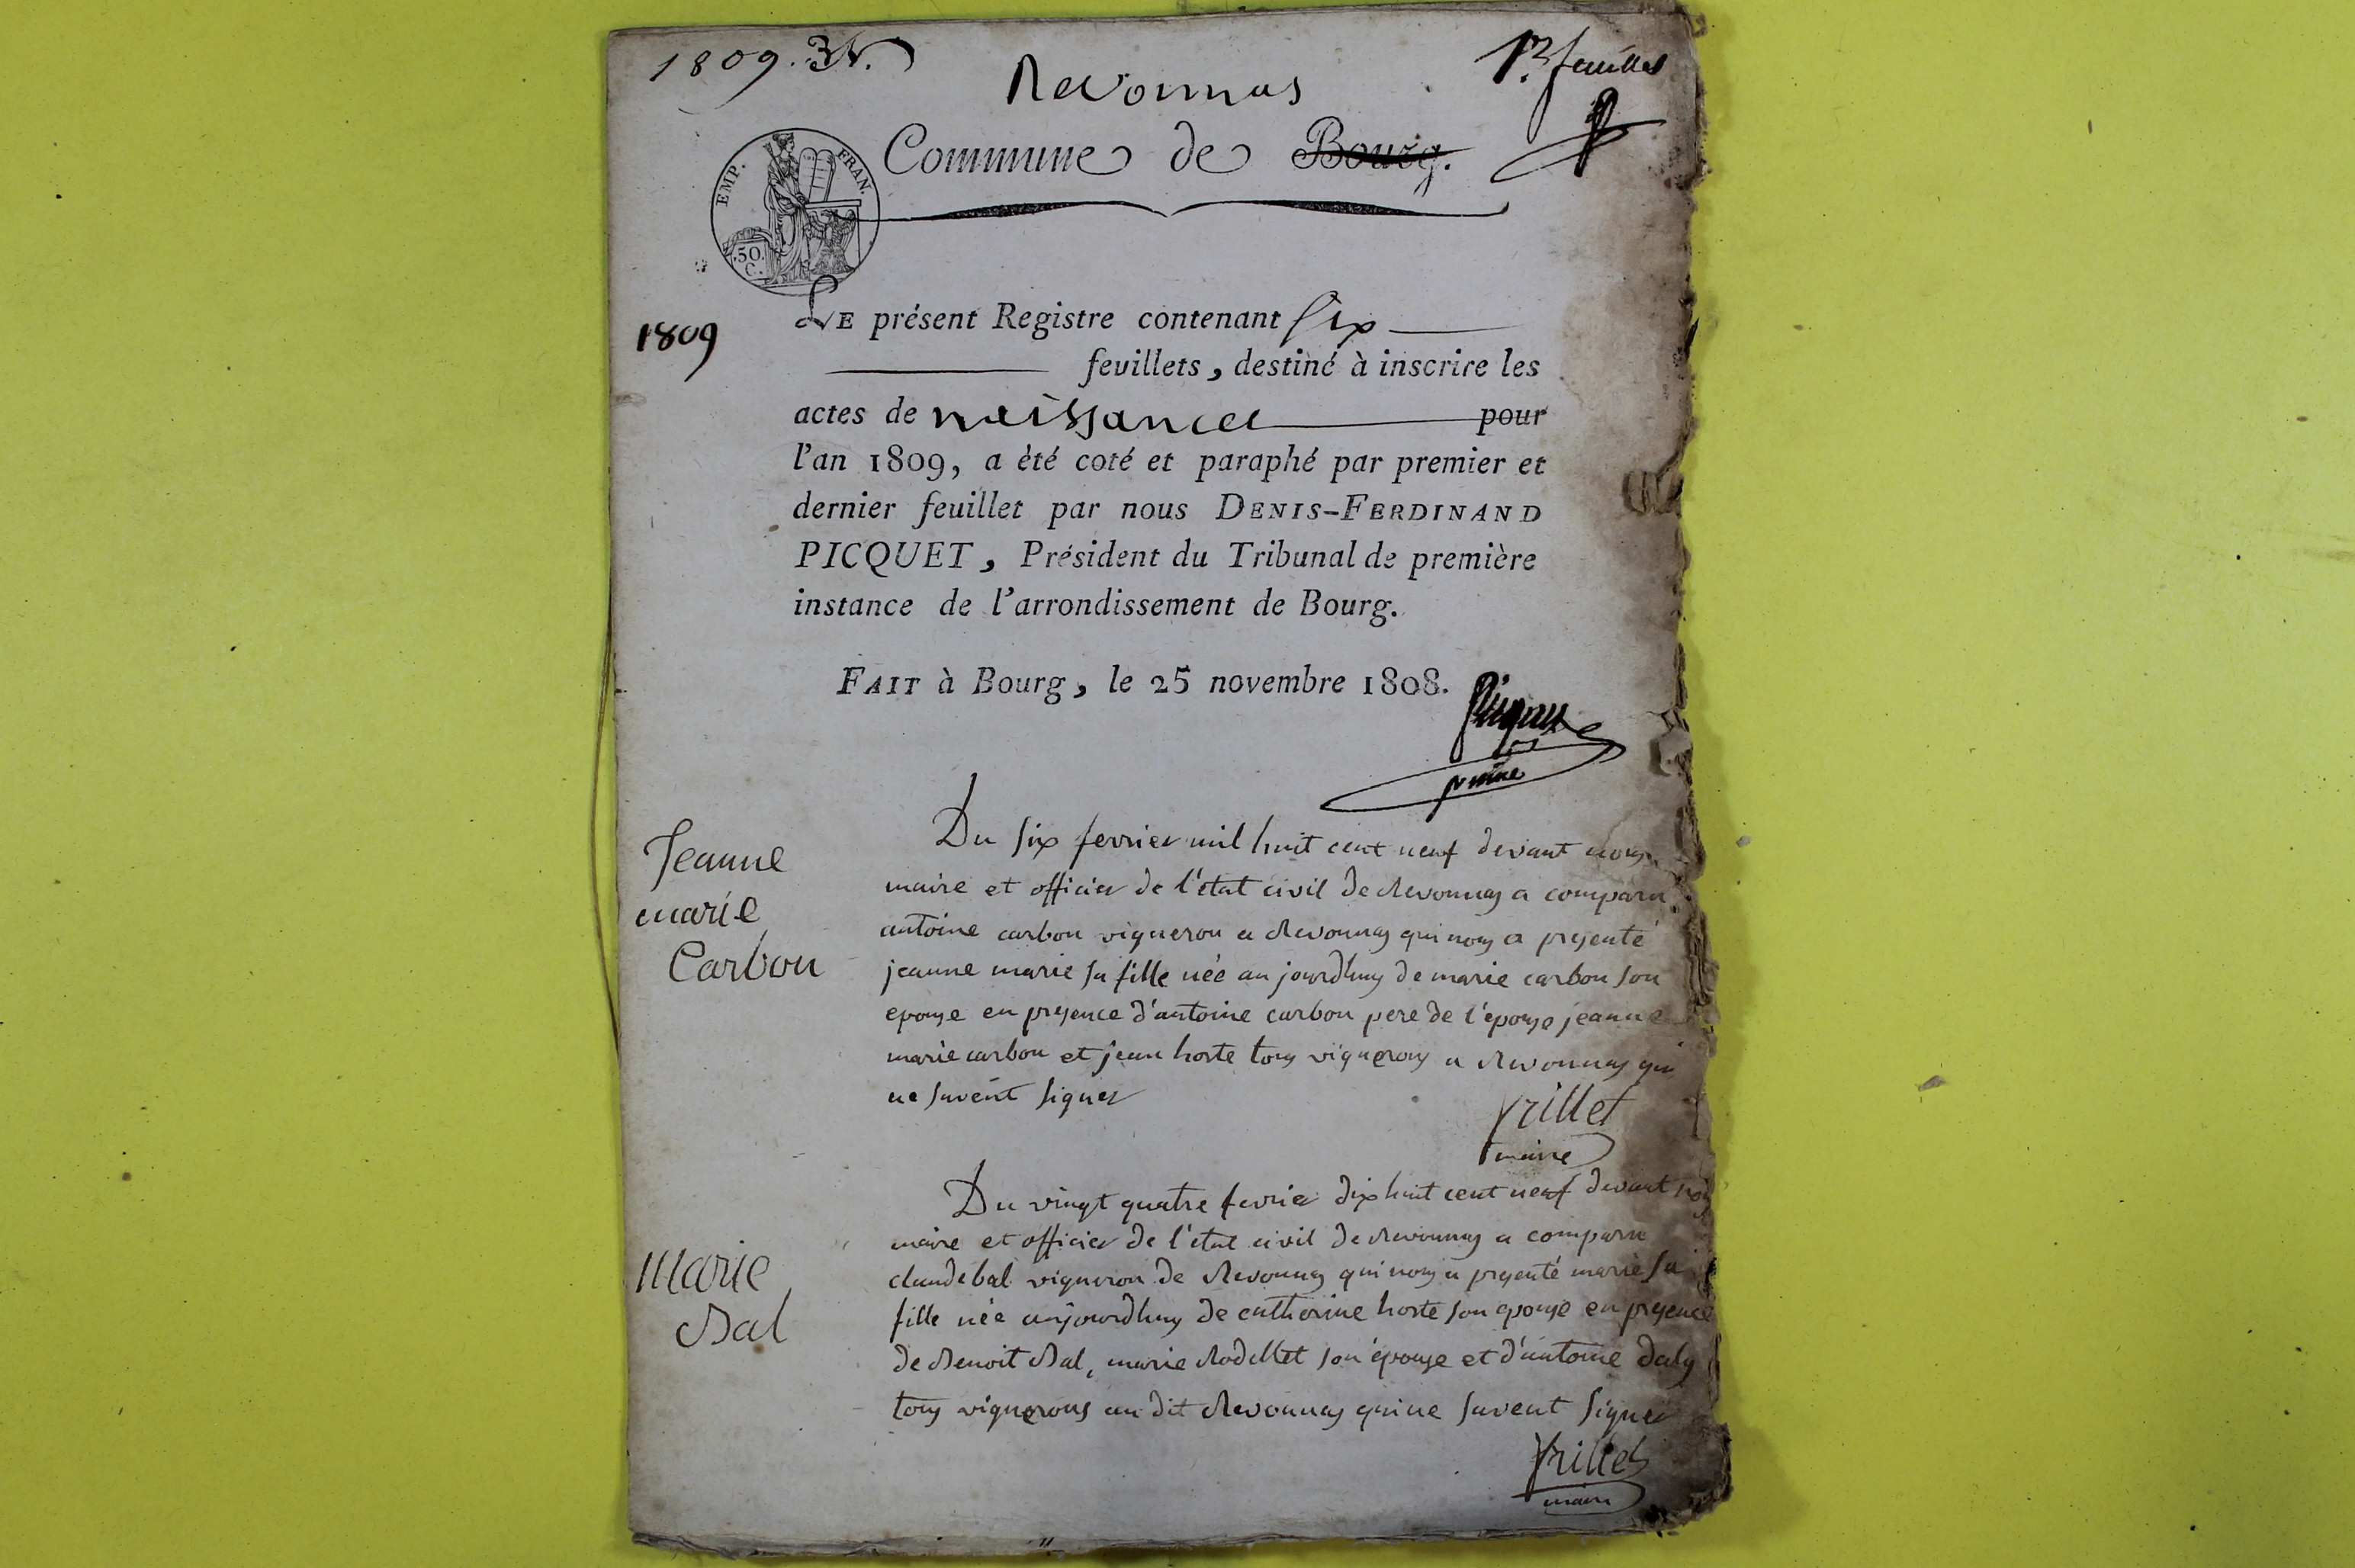 1809. 3 N.
1er feuillet
Revonnas
Commune de Bourg.
EMP. FRAN.
50. C.
1809
LE présent Registre contenant six
feuillets, destiné à inscrire les
actes de naissance pour
l'an 1809, a été coté et paraphé par premier et
dernier feuillet par nous DENIS-FERDINAND
PICQUET, Président du Tribunal de première
instance de l'arrondissement de Bourg.
FAIT à Bourg, le 25 novembre 1808.
Picquet
Jeanne
marie
Carbon
Du six fevrier mil huit cent neuf devant nous
maire et officier de l'état civil de Revonnas a comparu
antoine carbon vigneron a Revonnas qui nous a presenté
jeanne marie sa fille née au jourdhuy de marie carbon son
epouse en presence d'antoine carbon pere de l'epouse jeanne
marie carbon et jean horte tous vignerons a Revonnas qui
ne savent signer
frillet
maire
Marie
Bal
Du vingt quatre fevrier dix huit cent neuf devant nous
maire et officier de l'état civil de Revonnas a comparu
claude bal vigneron de Revonnas qui nous a presenté marie sa
fille née aujourdhuy de catherine horte son epouse en presence
de Benoit Bal, marie Rodillet son épouse et d'antoine daly
tous vignerons au dit Revonnas qui ne savent signer
frillet
maire